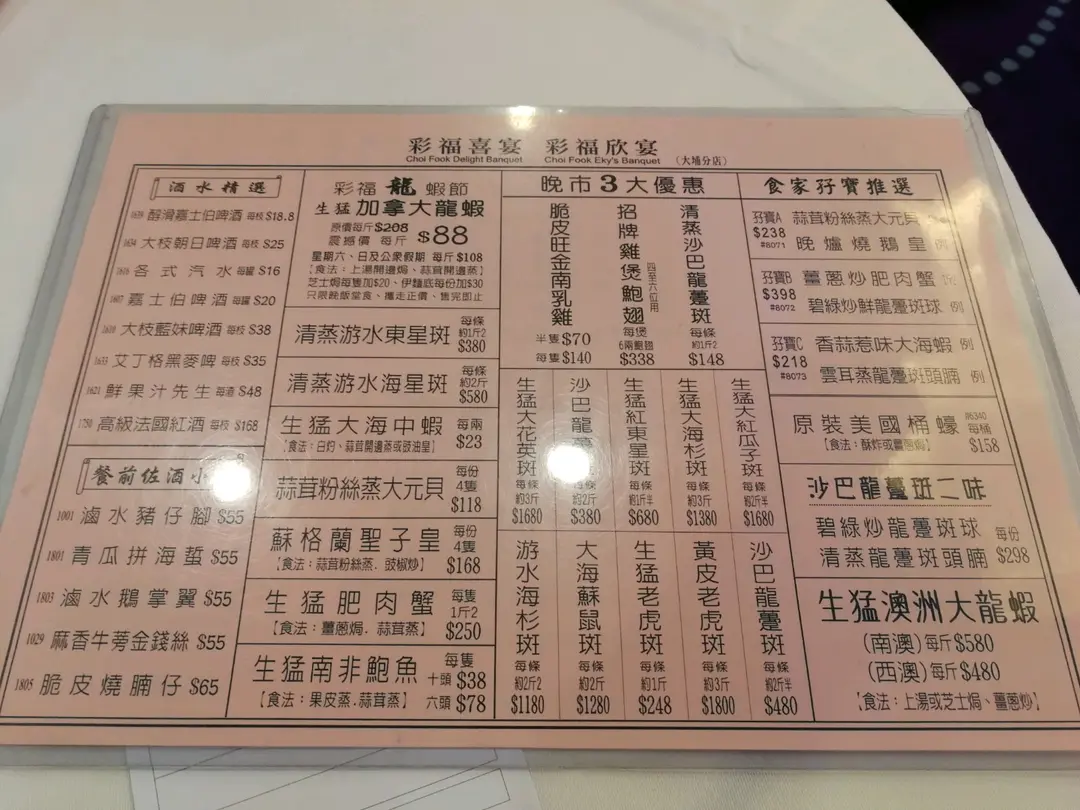 彩福喜宴 彩福欣宴 (大埔分店)
Choi Fook Delight Banquet Choi Fook Eky's Banquet
酒水精選
醇滑嘉士伯啤酒 每枝 $18.8
大枝朝日啤酒 每枝 $25
各式汽水 每罐 $16
嘉士伯啤酒 每罐 $20
大枝藍妹啤酒 每枝 $38
1633 艾丁格黑麥啤 每枝 $35
1621 鮮果汁先生 每渣 $48
1750 高級法國紅酒 每枝 $168
餐前佐酒小
1001 滷水豬仔腳 $55
1801 青瓜拼海蜇 $55
1803 滷水鵝掌翼 $55
1029 麻香牛蒡金錢絲 $55
1805 脆皮燒腩仔 $65
彩福龍蝦節
生猛加拿大龍蝦
原價每斤 $208
震撼價 每斤 $88
星期六、日及公眾假期 每斤 $108
【食法：上湯開邊焗、蒜茸開邊蒸】
芝士焗每隻加$20、伊麵底每份加$30
只限晚飯堂食、攜走正價、售完即止
清蒸游水東星斑 每條 約1斤2 $380
清蒸游水海星斑 每條 約2斤 $580
生猛大海中蝦 每兩 $23
【食法：白灼、蒜茸開邊蒸或豉油皇】
蒜茸粉絲蒸大元貝 每份 4隻 $118
蘇格蘭聖子皇 每份 4隻 $168
【食法：蒜茸粉絲蒸．豉椒炒】
生猛肥肉蟹 每隻 1斤2 $250
【食法：薑蔥焗．蒜茸蒸】
生猛南非鮑魚 每隻 十頭 $38 六頭 $78
【食法：果皮蒸．蒜茸蒸】
晚市3大優惠
脆皮旺金南乳雞
半隻 $70
每隻 $140
招牌雞煲鮑翅
四至六位用
每煲
6兩鮑翅
$338
清蒸沙巴龍躉斑
每條
約1斤2
$148
生猛大花英斑
每條
約3斤
$1680
沙巴龍躉斑
每條
約2斤
$380
生猛紅東星斑
每條
約1斤半
$680
生猛大海杉斑
每條
約3斤
$1380
生猛大紅瓜子斑
每條
約2斤半
$1680
游水海杉斑
每條
約2斤2
$1180
大海蘇鼠斑
每條
約2斤
$1280
生猛老虎斑
每條
約1斤
$248
黃皮老虎斑
每條
約3斤
$1800
沙巴龍躉斑
每條
約2斤半
$480
食家孖寶推選
孖寶A $238 #8071
蒜茸粉絲蒸大元貝
晚爐燒鵝皇 例
孖寶B $398 #8072
薑蔥炒肥肉蟹
碧綠炒鮮龍躉斑球 例
孖寶C $218 #8073
香蒜惹味大海蝦 例
雲耳蒸龍躉斑頭腩 例
原裝美國桶蠔 每桶 $158
【食法：酥炸或薑蔥焗】
沙巴龍躉斑二味
碧綠炒龍躉斑球
清蒸龍躉斑頭腩
每份 $298
生猛澳洲大龍蝦
(南澳) 每斤 $580
(西澳) 每斤 $480
【食法：上湯或芝士焗、薑蔥炒】